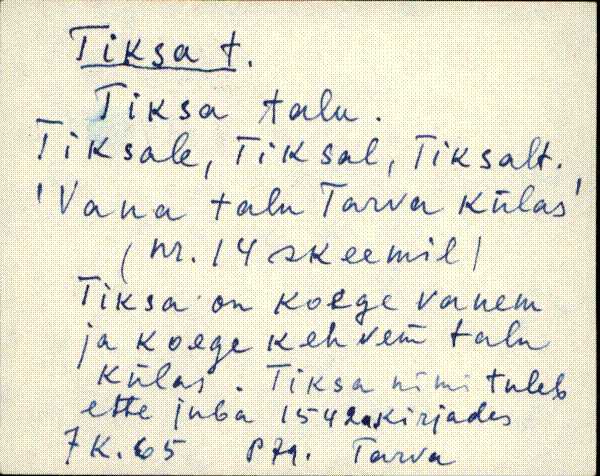 Tiksa t.
Tiksa talu.
Tiksale, Tiksal, Tiksalt.
'Vana talu Tarva külas'
(nr. 14 skeemil)
Tiksa on koege vanem
ja koege kehvem talu
külas. Tiksa nimi tuleb
ette juba 1542a kirjades
7K.65 Tarva